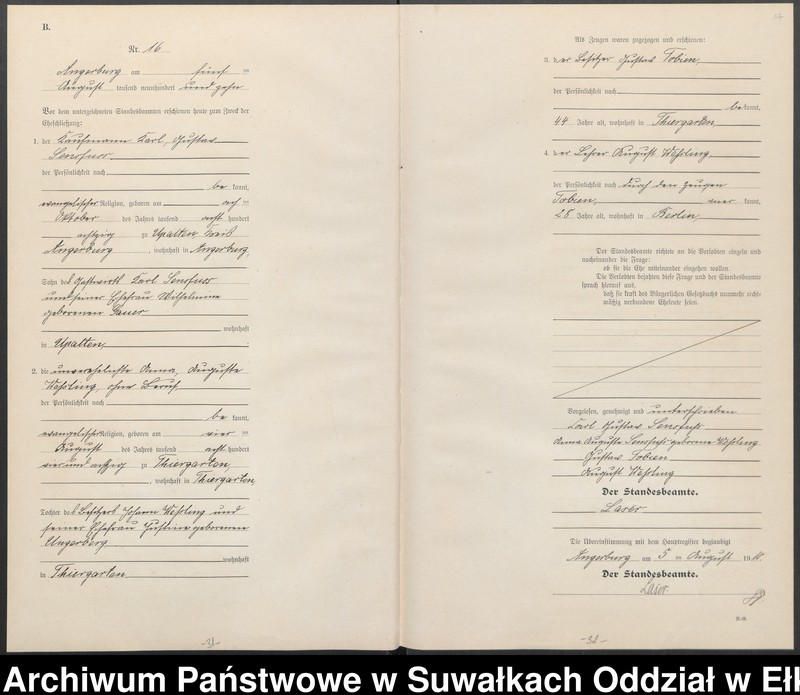 B.
Nr. 16
Angerburg am fünf ten
August tausend neunhundert und zehn
Vor dem unterzeichneten Standesbeamten erschienen heute zum Zweck der
Eheschließung:
1. der Kaufmann Karl, Gustav
der Persönlichkeit nach
be kannt,
evangelischer Religion, geboren am ach ten
Oktober des Jahres tausend acht hundert
achtzig zu Upalten Kreis
Angerburg, wohnhaft in Angerburg,
Sohn des Gastwirts Karl
und seiner Ehefrau Wilhelmine
geborenen
wohnhaft
in Upalten.
2. die unverehelichte Anna, Auguste
Weßling, ohne Beruf
der Persönlichkeit nach
be kannt,
evangelischer Religion, geboren am vier ten
August des Jahres tausend acht hundert
vier und achtzig zu Thiergarten,
, wohnhaft in Thiergarten,
Tochter des Besitzers Johann Weßling und
seiner Ehefrau Justine geborenen
Ungerberg
wohnhaft
in Thiergarten
-31-
Als Zeugen waren zugezogen und erschienen:
3. der Besitzer Gustav Tobien,
der Persönlichkeit nach
be kannt,
44 Jahre alt, wohnhaft in Thiergarten,
4. der Lehrer August Weßling,
der Persönlichkeit nach durch den Zeugen
Tobien, aner kannt,
28 Jahre alt, wohnhaft in Berlin,
Der Standesbeamte richtete an die Verlobten einzeln und
nacheinander die Frage:
ob sie die Ehe miteinander eingehen wollen.
Die Verlobten bejahten diese Frage und der Standesbeamte
sprach hierauf aus,
daß sie kraft des Bürgerlichen Gesetzbuchs nunmehr recht-
mäßig verbundene Eheleute seien.
Vorgelesen, genehmigt und unterschrieben
Karl Gustav
Anna Auguste geborene Weßling
Gustav Tobien
August Weßling
Der Standesbeamte.
Laser
Die Übereinstimmung mit dem Hauptregister beglaubigt
Angerburg am 5 ten August 1910.
Der Standesbeamte.
Laser
-32-
Archiwum Państwowe w Suwałkach Oddział w Eł